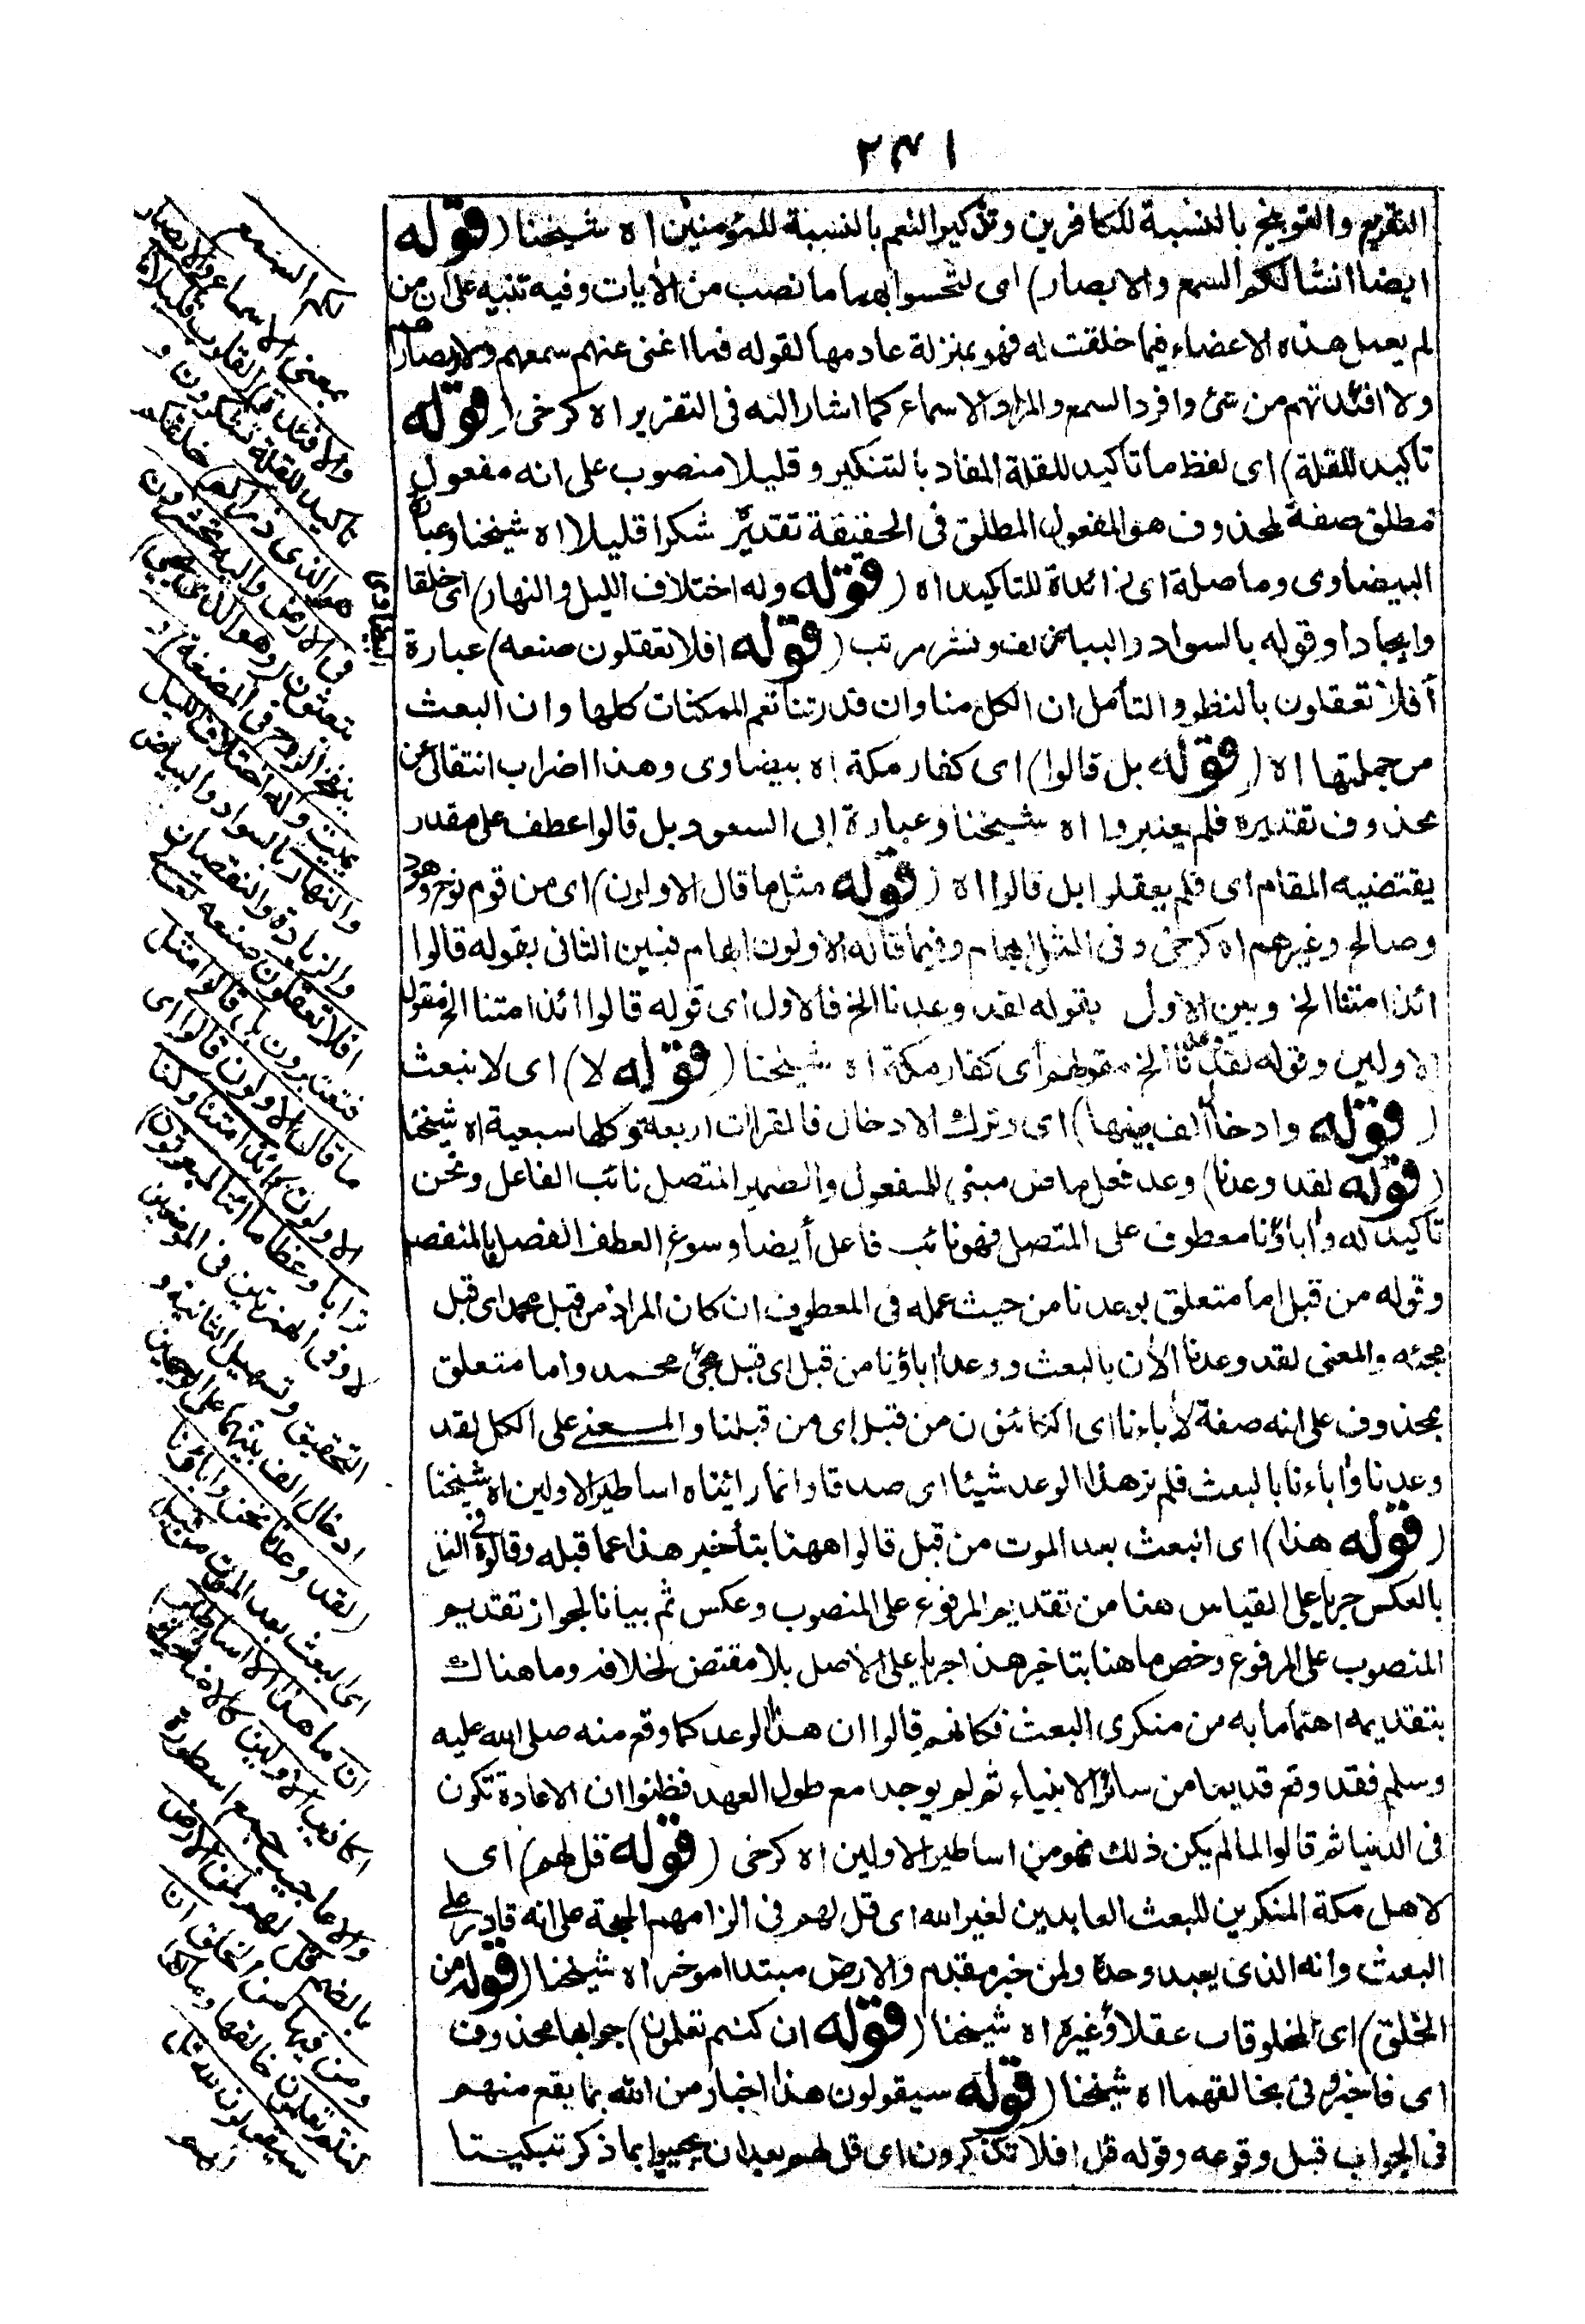 ٢٣١
التقريع والتوبيخ بالنسبة للكافرين وتذكير النعم بالنسبة للمؤمنين اه شيخنا (قوله
ايضا انشا لكم السمع والابصار) اى لتحسوا بهما ما نصب من الأيات وفيه تنبيه على ان من
لم يعمل هذه الاعضاء فيما خلقت له فهو بمنزلة عادمها لقوله فما اغنى عنهم سمعهم ولا ابصارهم
ولا افئدتهم من شئ وافرد السمع والمراد الاسماع كما اشار اليه فى التقرير اه كرخى (قوله
تأكيد للقلة) اى لفظ ما تأكيد للقلة المفاد بالتنكير وقليلا منصوب على انه مفعول
مطلق صفة لمحذوف هو المفعول المطلق فى الحقيقة تقديره شكرا قليلا اه شيخنا وعبارة
البيضاوى وما صلة اى زائدة للتاكيد اه (قوله وله اختلاف الليل والنهار) اى خلقا
وايجادا وقوله بالسواد والبياض لف ونشر مرتب (قوله افلا تعقلون صنعه) عبارة البيضاوى
أفلا تعقلون بالنظر والتأمل ان الكل منا وان قدرتنا تعم الممكنات كلها وان البعث
من جملتها اه (قوله بل قالوا) اى كفار مكة اه بيضاوى وهذا اضراب انتقالى عن
محذوف تقديره فلم يعتبروا اه شيخنا وعبارة ابى السعود بل قالوا عطف على مقدر
يقتضيه المقام اى فلم يعقلوا بل قالوا اه (قوله مثل ما قال الاولون) اى من قوم نوح وهود
وصالح وغيرهم اه كرخى وفى المثل ابهام وفيما قاله الاولون ابهام فبين الثانى بقوله قالوا
ائذا متنا الخ وبين الاول بقوله لقد وعدنا الخ فالاول اى قوله قالوا ائذا متنا الخ مقول
الاولين وقوله لقد وعدنا الخ مقولهم أى كفار مكة اه شيخنا (قوله لا) اى لا نبعث
(قوله وادخال ألف بينهما) اى وترك الادخال فالقراات اربعة وكلها سبعية اه شيخنا
(قوله لقد وعدنا) وعد فعل ماض مبنى للمفعول والضمير المتصل نائب الفاعل ونحن
تأكيد له وأباؤنا معطوف على المتصل فهو نائب فاعل أيضا وسوغ العطف الفصل بالمنفصل
وقوله من قبل اما متعلق بوعدنا من حيث عمله فى المعطوف ان كان المراد من قبل محمد اى قبل
مجئه والمعنى لقد وعدنا الأن بالبعث ووعد اباؤنا من قبل اى قبل مجئ محمد واما متعلق
بمحذوف على انه صفة لأباءنا اى الكائنون من قبل اى من قبلنا والمعنى على الكل لقد
وعدنا وأباءنا بالبعث فلم نر هذا الوعد شيئا اى صدقا وانما رائيناه اساطير الاولين اه شيخنا
(قوله هذا) اى البعث بعد الموت من قبل قالوا ههنا بتأخير هذا عما قبله وقالوه فى النمل
بالعكس جريا على القياس هنا من تقديم المرفوع على المنصوب وعكس ثم بيانا لجواز تقديم
المنصوب على المرفوع وخص ما هنا بتاخير هذا جريا على الاصل بلا مقتض لخلافه وما هناك
بتقديمه اهتماما به من منكرى البعث فكانهم قالوا ان هذا الوعد كما وقع منه صلى الله عليه
وسلم فقد وقع قديما من سائر الانبياء ثم لم يوجد مع طول العهد فظنوا ان الاعادة تكون
فى الدنيا ثم قالوا لما لم يكن ذلك فهو من اساطير الاولين اه كرخى (قوله قل لهم) اى
لاهل مكة المنكرين للبعث العابدين لغير الله اى قل لهم فى الزامهم الحجة على انه قادر على
البعث وانه الذى يعبد وحدة ولمن خبر مقدم والارض مبتدا موخر اه شيخنا (قوله من
الخلق) اى المخلوقات عقلا وغيره اه شيخنا (قوله ان كنتم تعلمون) جوابها محذوف
اى فاخبرونى بخالقهما اه شيخنا (قوله سيقولون هذا اخبار من الله بما يقع منهم
فى الجواب قبل وقوعه وقوله قل افلا تذكرون اى قل لهم بعد ان يجيبوا بما ذكر تبكيتا
لكم السمع
بمعنى الاسماع والابصار
والافئدة القلوب قليلا ما
تاكيد للقلة تشكرون و
هو الذى ذراكم خلقكم
فى الارض واليه تحشرون
تبعثون وهو الذى يحيى
ينفخ الروح فى المضغة و
يميت وله اختلاف الليل
والنهار بالسواد والبياض
والزيادة والنقصان
افلا تعقلون صنعه تعالى
فتعتبرون بل قالوا مثل
ما قال الاولون قالوا اى
الاولون ائذا متنا وكنا
ترابا وعظاما ائنا لمبعوثون
لا وفى الهمزتين فى الموضعين
التحقيق وتسهيل الثانية و
ادخال الف بينهما على الوجهين
لقد وعدنا نحن واباؤنا هذا
اى البعث بعد الموت من قبل
ان ما هذا الا اساطير
الاولين كالاضاحيك
والاعاجيب جمع اسطورة
بالضم قل لهم لمن الارض
ومن فيها من الخلق ان
كنتم تعلمون خالقها ومالكها
سيقولون لله قل
لهم